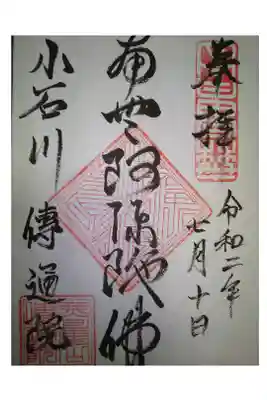 奉拝
令和二年
七月十日
南無阿弥陀佛
小石川 傳通院